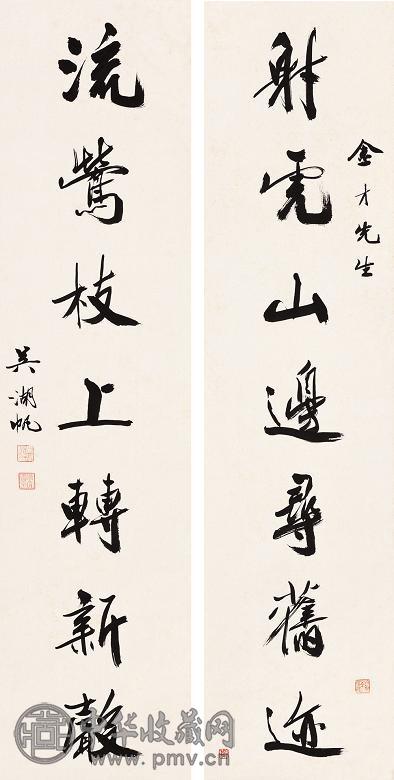 金才先生
射虎山邊尋舊迹
流鶯枝上轉新聲
吳湖帆
中华收藏网
www.pmv.cn